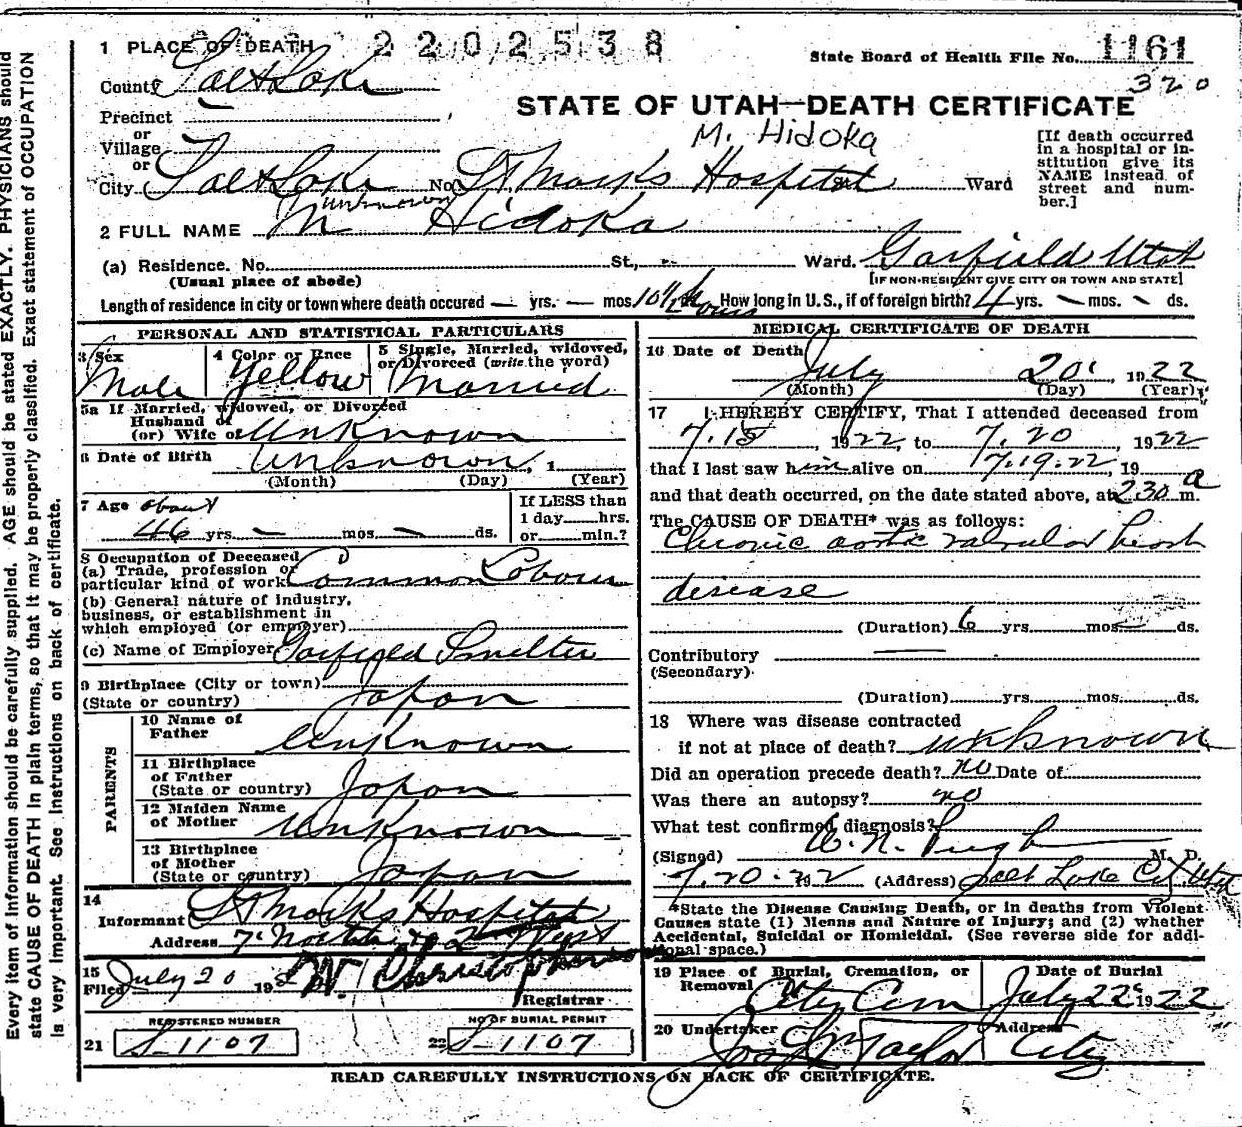 2202538
1 PLACE OF DEATH
State Board of Health File No. 1161
320
County Salt Lake
STATE OF UTAH—DEATH CERTIFICATE
Precinct
or
Village
or
M. Hidoka
[If death occurred in a hospital or institution give its NAME instead of street and number.]
City Salt Lake No. St Marks Hospital Ward
unknown
2 FULL NAME M Hidoka
(a) Residence. No. St., Ward. Garfield Utah
(Usual place of abode) [IF NON-RESIDENT GIVE CITY OR TOWN AND STATE]
Length of residence in city or town where death occured — yrs. — mos. How long in U.S., if of foreign birth? 4 yrs. — mos. — ds.
PERSONAL AND STATISTICAL PARTICULARS
3 Sex
Male
4 Color or Race
Yellow
5 Single, Married, widowed, or Divorced (write the word)
Married
5a If Married, widowed, or Divorced
Husband of
(or) Wife of Unknown
6 Date of Birth Unknown, 1
(Month) (Day) (Year)
7 Age about
46 yrs. — mos. — ds.
If LESS than
1 day hrs.
or min.?
8 Occupation of Deceased
(a) Trade, profession or
particular kind of work Common Labour
(b) General nature of industry,
business, or establishment in
which employed (or employer)
(c) Name of Employer Garfield Smelter
9 Birthplace (City or town)
(State or country) Japan
PARENTS
10 Name of
Father Unknown
11 Birthplace
of Father
(State or country) Japan
12 Maiden Name
of Mother Unknown
13 Birthplace
of Mother
(State or country) Japan
14
Informant St Marks Hospital
Address 7 North & 2 West
15
Filed July 20 192
Registrar
REGISTERED NUMBER
21 S-1107
NO OF BURIAL PERMIT
22 S-1107
MEDICAL CERTIFICATE OF DEATH
16 Date of Death
July 20, 1922
(Month) (Day) (Year)
17 I HEREBY CERTIFY, That I attended deceased from
7.15, 1922, to 7.20, 1922
that I last saw him alive on 7.19.22, 19
and that death occurred, on the date stated above, at 230 a m.
The CAUSE OF DEATH* was as follows:
Chronic aortic valvular heart
disease
(Duration) 6 yrs. mos. ds.
Contributory
(Secondary)
(Duration) yrs. mos. ds.
18 Where was disease contracted
if not at place of death? unknown
Did an operation precede death? no Date of
Was there an autopsy? no
What test confirmed diagnosis?
(Signed) Pugh M. D.
7.20.22 (Address) Salt Lake City, Utah
*State the Disease Causing Death, or in deaths from Violent
Causes state (1) Means and Nature of Injury; and (2) whether
Accidental, Suicidal or Homicidal. (See reverse side for addi-
tional space.)
19 Place of Burial, Cremation, or
Removal City Cem
Date of Burial
July 22 1922
20 Undertaker Address
Taylor City
READ CAREFULLY INSTRUCTIONS ON BACK OF CERTIFICATE.
Every item of information should be carefully supplied. AGE should be stated EXACTLY. PHYSICIANS should
state CAUSE OF DEATH in plain terms, so that it may be properly classified. Exact statement of OCCUPATION
is very important. See instructions on back of certificate.